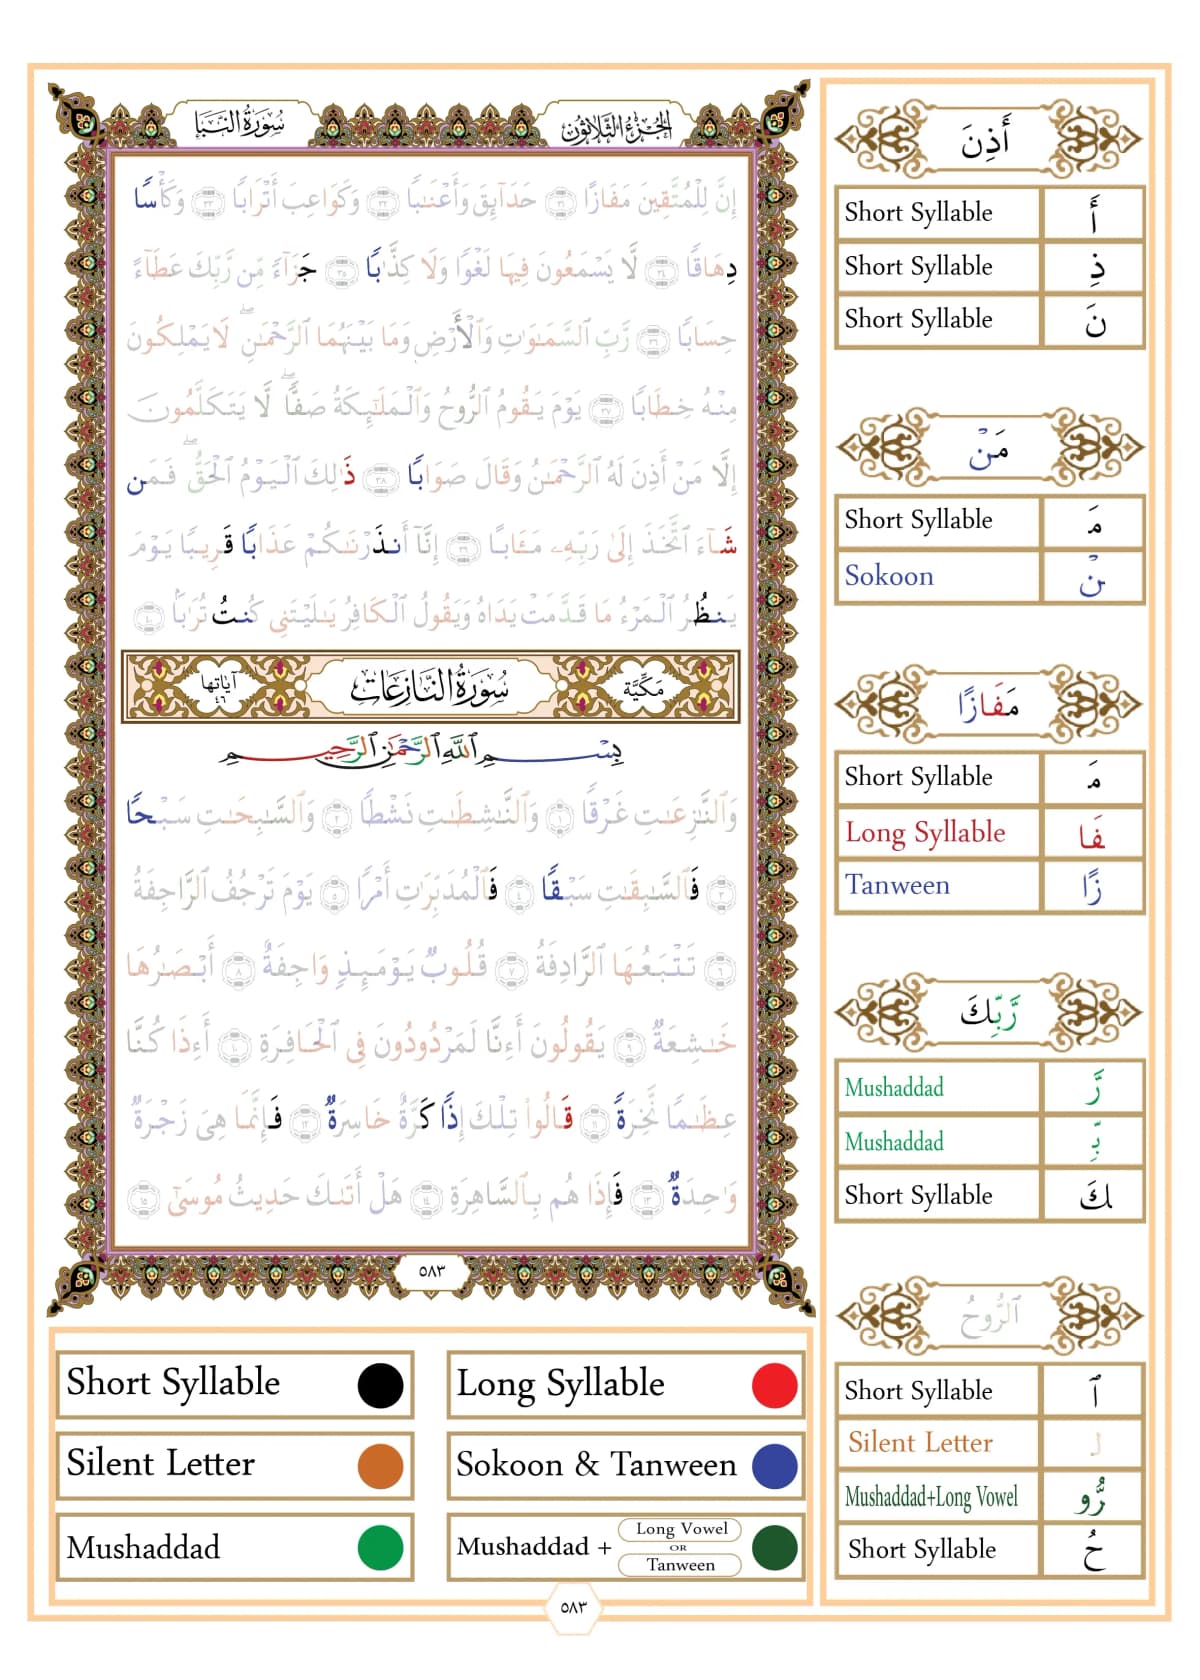 سُورَةُ النَّبَإِ
الجُزْءُ الثَّلَاثُونَ
إِنَّ لِلْمُتَّقِينَ مَفَازًا ٣١ حَدَآئِقَ وَأَعْنَٰبًا ٣٢ وَكَوَاعِبَ أَتْرَابًا ٣٣ وَكَأْسًا
دِهَاقًا ٣٤ لَّا يَسْمَعُونَ فِيهَا لَغْوًا وَلَا كِذَّٰبًا ٣٥ جَزَآءً مِّن رَّبِّكَ عَطَآءً
حِسَابًا ٣٦ رَّبِّ ٱلسَّمَٰوَٰتِ وَٱلْأَرْضِ وَمَا بَيْنَهُمَا ٱلرَّحْمَٰنِۖ لَا يَمْلِكُونَ
مِنْهُ خِطَابًا ٣٧ يَوْمَ يَقُومُ ٱلرُّوحُ وَٱلْمَلَٰٓئِكَةُ صَفًّاۖ لَّا يَتَكَلَّمُونَ
إِلَّا مَنْ أَذِنَ لَهُ ٱلرَّحْمَٰنُ وَقَالَ صَوَابًا ٣٨ ذَٰلِكَ ٱلْيَوْمُ ٱلْحَقُّۖ فَمَن
شَآءَ ٱتَّخَذَ إِلَىٰ رَبِّهِۦ مَـَٔابًا ٣٩ إِنَّآ أَنذَرْنَٰكُمْ عَذَابًا قَرِيبًا يَوْمَ
يَنظُرُ ٱلْمَرْءُ مَا قَدَّمَتْ يَدَاهُ وَيَقُولُ ٱلْكَافِرُ يَٰلَيْتَنِى كُنتُ تُرَٰبًۢا ٤٠
مَكِّيَّة
سُورَةُ النَّازِعَاتِ
آيَاتُهَا ٤٦
بِسْمِ ٱللَّهِ ٱلرَّحْمَٰنِ ٱلرَّحِيمِ
وَٱلنَّٰزِعَٰتِ غَرْقًا ١ وَٱلنَّٰشِطَٰتِ نَشْطًا ٢ وَٱلسَّٰبِحَٰتِ سَبْحًا
٣ فَٱلسَّٰبِقَٰتِ سَبْقًا ٤ فَٱلْمُدَبِّرَٰتِ أَمْرًا ٥ يَوْمَ تَرْجُفُ ٱلرَّاجِفَةُ
٦ تَتْبَعُهَا ٱلرَّادِفَةُ ٧ قُلُوبٌ يَوْمَئِذٍ وَاجِفَةٌ ٨ أَبْصَٰرُهَا
خَٰشِعَةٌ ٩ يَقُولُونَ أَءِنَّا لَمَرْدُودُونَ فِى ٱلْحَافِرَةِ ١٠ أَءِذَا كُنَّا
عِظَٰمًا نَّخِرَةً ١١ قَالُوا۟ تِلْكَ إِذًا كَرَّةٌ خَاسِرَةٌ ١٢ فَإِنَّمَا هِىَ زَجْرَةٌ
وَٰحِدَةٌ ١٣ فَإِذَا هُم بِٱلسَّاهِرَةِ ١٤ هَلْ أَتَىٰكَ حَدِيثُ مُوسَىٰٓ ١٥
٥٨٣
أَذِنَ
Short Syllable أَ
Short Syllable ذِ
Short Syllable نَ
مَنْ
Short Syllable مَـ
Sokoon نْ
مَفَازًا
Short Syllable مَـ
Long Syllable فَا
Tanween زًا
رَّبِّكَ
Mushaddad رَّ
Mushaddad بِّـ
Short Syllable ـكَ
ٱلرُّوحُ
Short Syllable ٱ
Silent Letter لـ
Mushaddad+Long Vowel رُّو
Short Syllable حُ
Short Syllable
Long Syllable
Silent Letter
Sokoon & Tanween
Mushaddad
Mushaddad + Long Vowel OR Tanween
٥٨٣